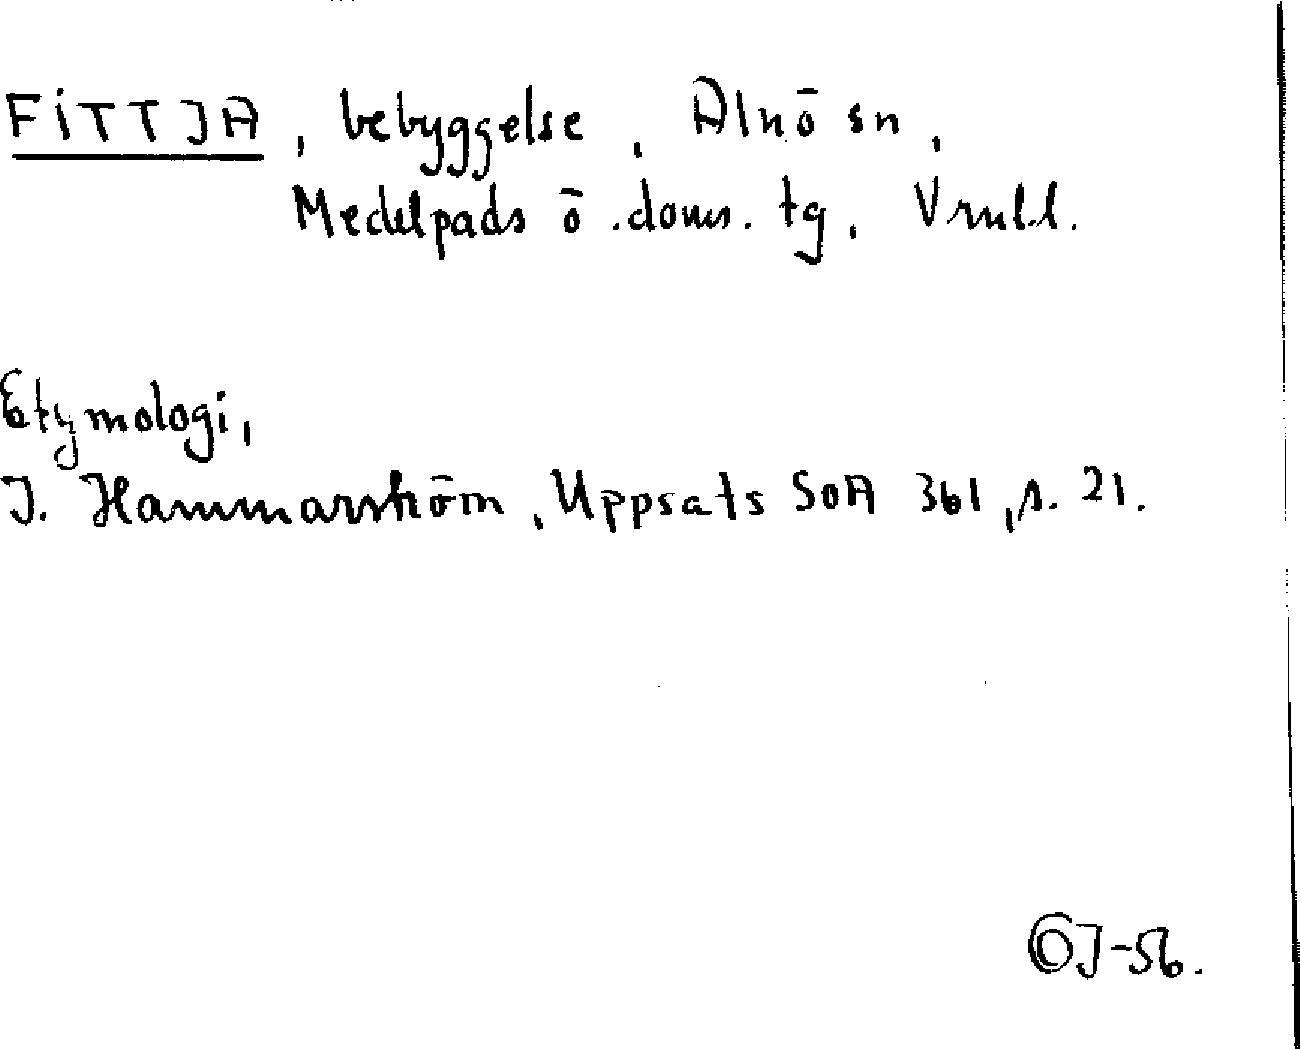 FITTJA, bebyggelse, Alnö sn,
Medelpads ö. doms. tg, Vrnll.
Etymologi,
J. Hammarström, Uppsats SOA 361, s. 21.
GJ-56.